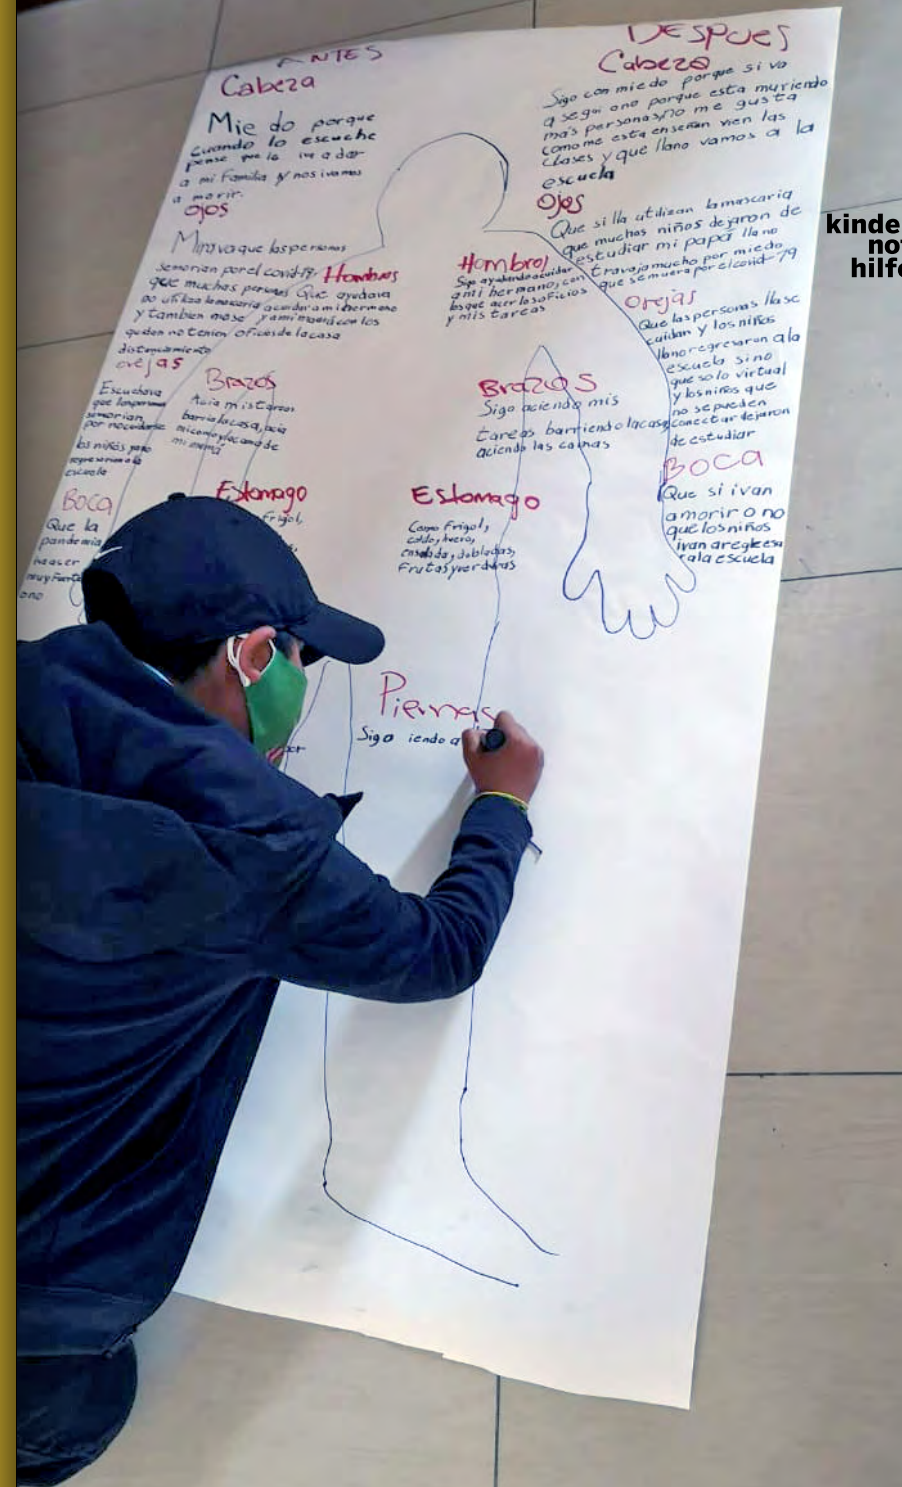 ANTES
Cabeza
Miedo porque
cuando lo escuche
pense que le iva a dar
a mi Familia y nos ivamos
a morir.
Ojos
Mirava que las personas
semorian por el covid-19
que muchas personas
no utiliza la mascaria
y tambien
quden no tenien
distanciamiento
Hombros
Que ayudava
acuidar a mi hermano
y a mi mamá con los
oficios de la casa
orejas
Escuchava
que las personas
semorian
por no cuidarse
los niños
regresarion a la
escuela
Brazos
Acia mis tareas
barria la casa, acia
mi cama y la cama de
mi mama
BOCA
Que la
pandemia
iva aser
muy Fuerte
o no
Estomago
Frigol,
DESPUES
Cabeza
Sigo con miedo porque si va
a segui ono porque esta muriendo
mas personas, no me gusta
como me esta enseñan vien las
clases y que llano vamos a la
escuela
Ojos
Que si lla utilizan la mascaria
que muchos niños dejaron de
estudiar mi papá lla no
travaja mucho por miedo
que se muera por el covid-79
Hombros
Sigo ayudando acuidar
a mi hermano, con
los que acer los oficios
y mis tareas
Orejas
Que las personas lla se
cuidan y los niños
lla no regresaron ala
escuela sino
que solo virtual
y los niños que
no se pueden
conectar dejaron
de estudiar
Brazos
Sigo aciendo mis
tareas barriendo la casa,
aciendo las camas
BOCA
Que si ivan
amorir o no
que los niños
ivan a regresa
r a la escuela
Estomago
Como Frigol,
caldo, huevo,
ensalada, dobladas,
Frutas y verduras
Piernas
Sigo iendo a
kinde
not
hilfe